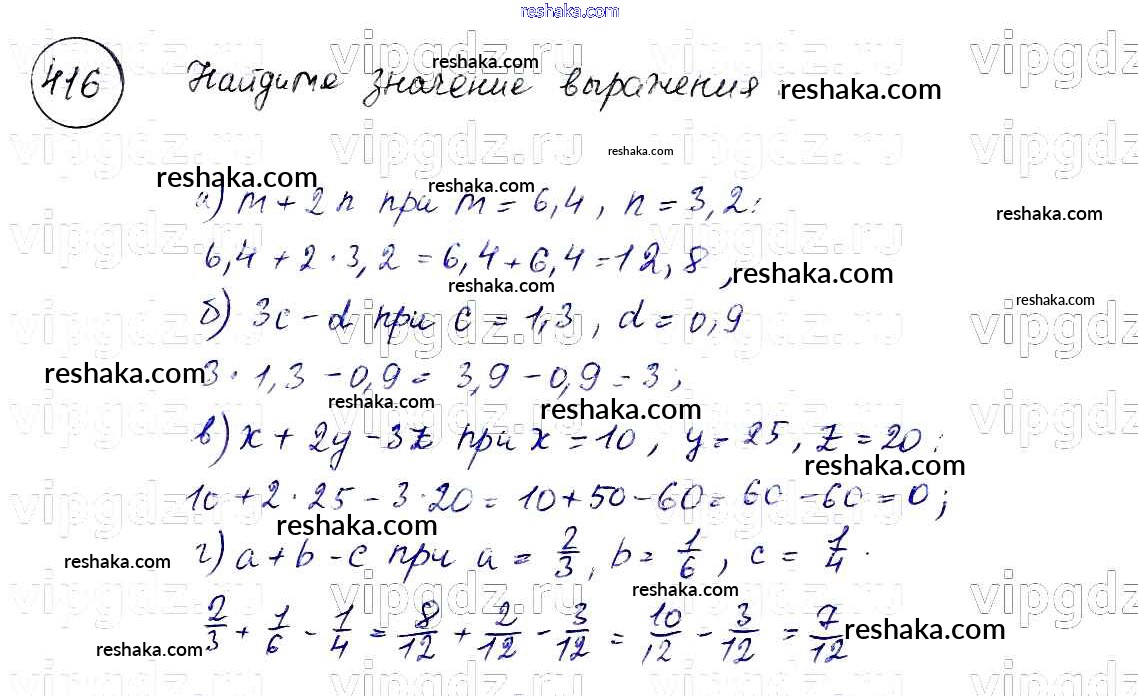 reshaka.com
416 Найдите значение выражения reshaka.com
reshaka.com
vipgdz.ru vipgdz.ru vipgdz.ru vipgdz.ru
reshaka.com
reshaka.com reshaka.com
а) m + 2n при m = 6,4, n = 3,2:
reshaka.com
6,4 + 2 · 3,2 = 6,4 + 6,4 = 12,8, reshaka.com
reshaka.com
б) 3c - d при c = 1,3, d = 0,9
reshaka.com
reshaka.com 3 · 1,3 - 0,9 = 3,9 - 0,9 = 3;
reshaka.com reshaka.com
в) x + 2y - 3z при x = 10, y = 25, z = 20;
reshaka.com
10 + 2 · 25 - 3 · 20 = 10 + 50 - 60 = 60 - 60 = 0;
reshaka.com
reshaka.com г) a + b - c при a = 2/3, b = 1/6, c = 1/4.
reshaka.com
2/3 + 1/6 - 1/4 = 8/12 + 2/12 - 3/12 = 10/12 - 3/12 = 7/12 reshaka.com
reshaka.com